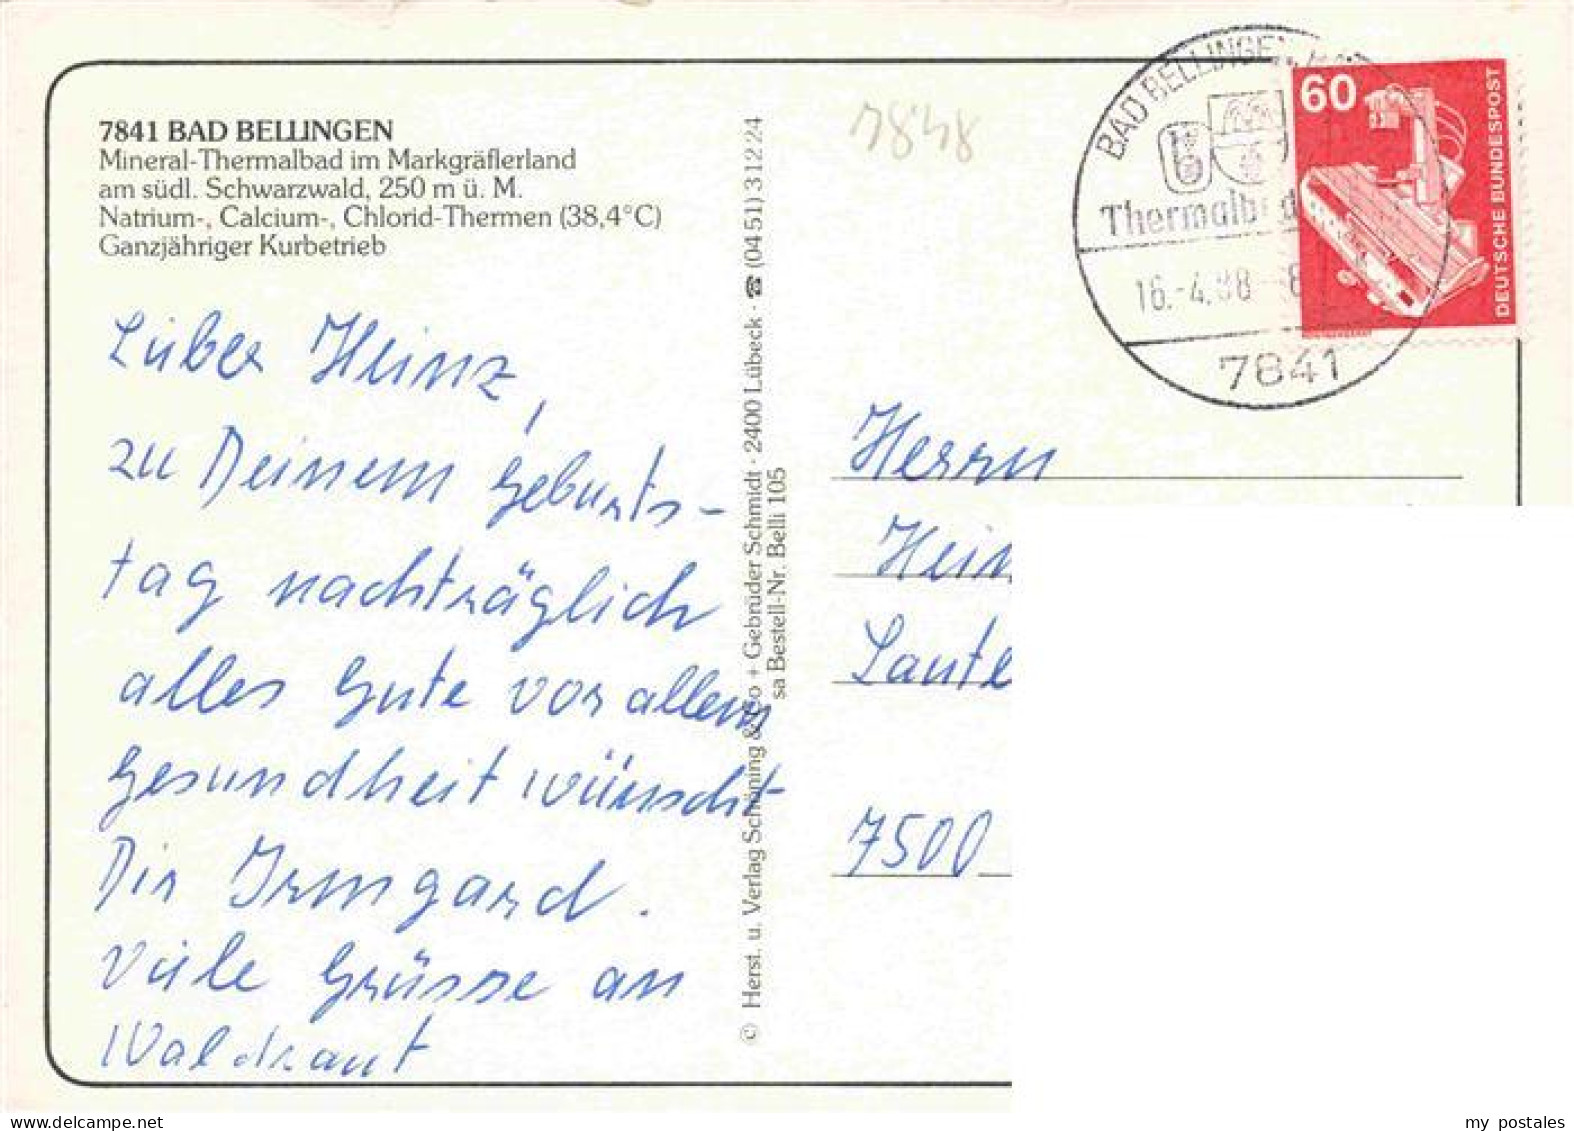 7841 BAD BELLINGEN
Mineral-Thermalbad im Markgräflerland
am südl. Schwarzwald, 250 m ü. M.
Natrium-, Calcium-, Chlorid-Thermen (38,4°C)
Ganzjähriger Kurbetrieb
Lieber Heinz,
zu Deinem Geburts-
tag nachträglich
alles Gute vor allem
Gesundheit wünscht
Dir Irmgard.
Viele Grüsse an
Waldraut
© Herst. u. Verlag Schöning & Co + Gebrüder Schmidt · 2400 Lübeck · ☎ (04 51) 3 12 24
sa Bestell-Nr. Belli 105
7848
BAD BELLINGEN
Thermalbad
16.-4.88
7841
60
DEUTSCHE BUNDESPOST
Herrn
Hein
Laute
7500
my postales